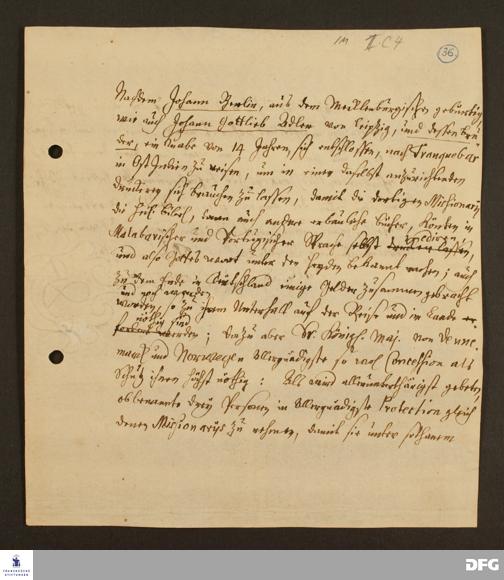 1M I. C4
36.
Nachdem Johann Berlin, aus dem Mecklenburgischen gebürtig,
wie auch Johann Gottlieb Adler von Leipzig, und dessen Bru-
der, ein Knabe von 14 Jahren, sich entschlossen, nach Tranquebar
in Ost Indien zu reisen, um in einer daselbst anzurichtenden
Druckerey sich brauchen zu lassen, damit die dortigen Missionarii
die heil. Bibel, dann auch andere erbauliche bücher, könten in
Malabarischer und Portugisischer Sprache selbst drucken lassen,
und also Gottes wort unter den Heyden bekannt machen; auch
zu dem Ende in Teütschland einige Gelder zusammen gebracht
und noch werden
worden, so zum Unterhalt auf der Reise und im Lande
nöthig sind
werden; hiezu aber Sr. Königl. Maj. von Denne-
marck und Norwegen allergnädigste so wol Concession als
Schutz ihnen höchst nöthig: Als wird allerunterthänigst gebeten,
obbenannte drey Personen in allergnädigste Protection gleich
denen Missionariis zu nehmen, damit sie unter sothanem
FRANCKESCHE
STIFTUNGEN
DFG